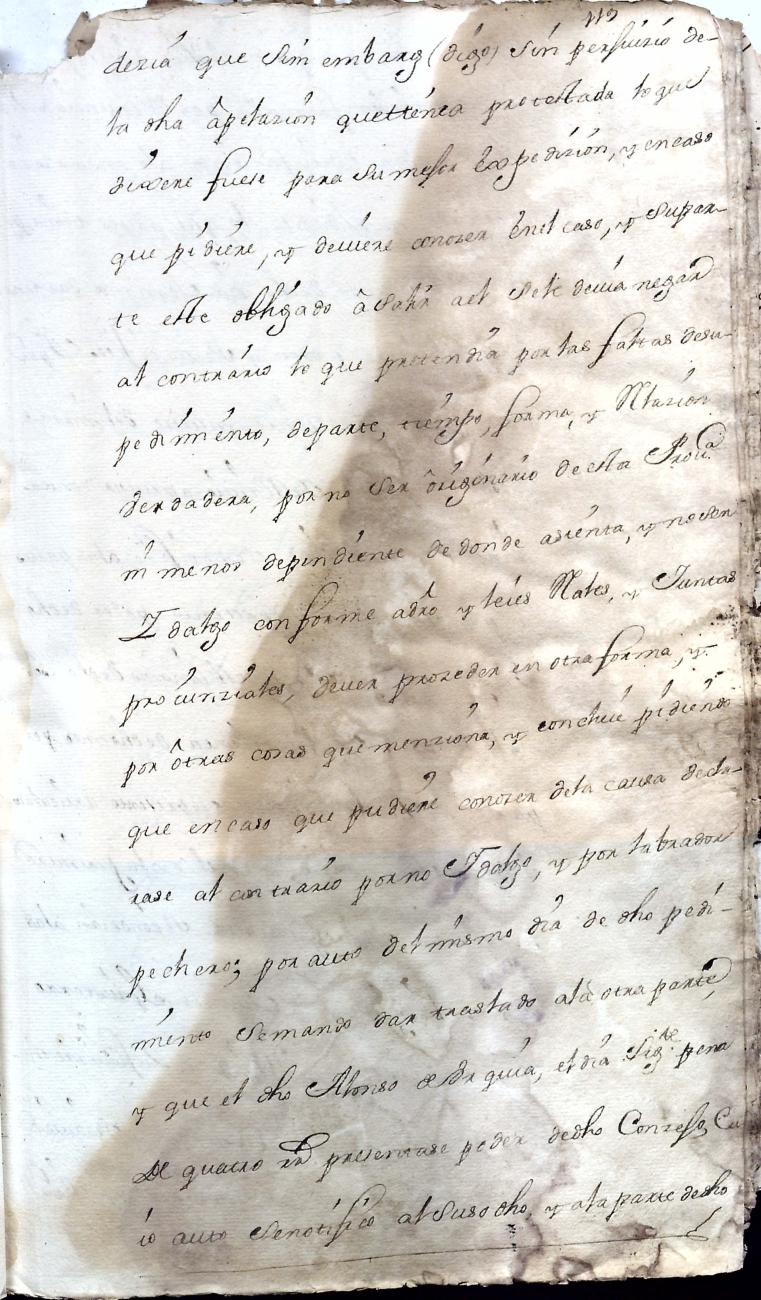 119
deziá que sin embarg (digo) sin persuizio de-
la dha âpelazion quettenia protestada lo que
dixere fuese para su mejor Expedizion, y encaso
que pidiére, y deuiere conozer Enel caso, y supar-
te este obligado â salir aél sele deuia negar
al contrario lo que pretendia por las faltas desu-
pedimento, departe, tiempo, forma, y Relazion
berdadera, por no ser ôriginario de esta Prouª
ni menos dependiente de donde asienta, y noser
Idalgo conforme adro y leies Rales, y Juntas
prouinziales, deuer prozeder en otra forma, y
por ôtras cosas que menziona, y concluie pidiendo
que encaso que pudiére conozer dela causa decla-
rase al contrario por no Idalgo, y por labrador
pechero; por auto del mismo dia de dho pedi-
mento semando dar traslado ala otra parte,
y que el dho Alonso de Vrquia, el dia sigte pena
De quatro rs presentase poder dedho Conzejo, Cu
io auto senotifico al suso dho, y ala parte dedho